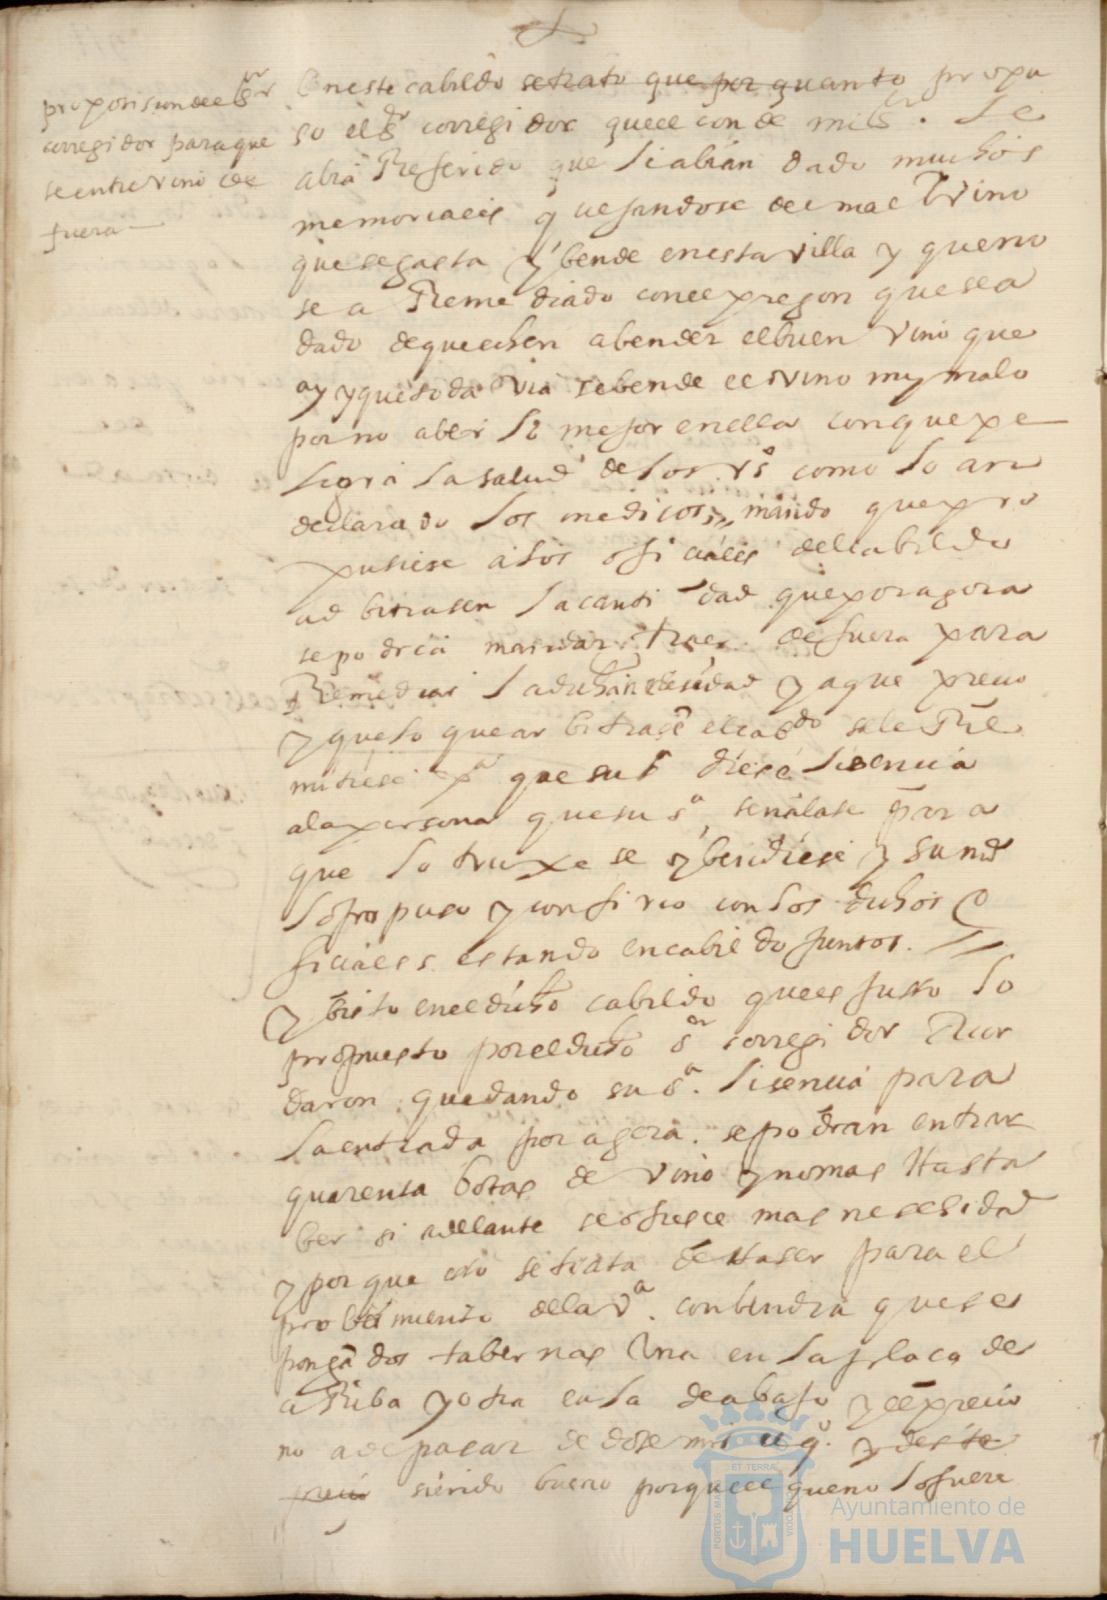 proposision del sr
corregidor para que
se entre vino de
fuera
En este cabildo se trato que por quanto propu
so el sr corregidor que el conde mi sr. le
abia Referido que le abian dado muchos
memoriales quejandose del mal Vino
que se gasta y bende en esta villa y que no
se a Reme diado con el pregon que se a
dado de que echen a bender el buen vino que
ay y que toda via se bende el vino muy malo
por no aber lo mejor en ella con que pe
ligra la salud de los vos como lo an
declarado los medicos y mando que pro
pusiese a los ofi ciales del cabildo
ad bitrasen la canti dad que por agora
se po dria mandar traer de fuera para
Remediar la dicha nesesidad y a que precio
y que lo que ar bitrase el cabdo se le Re
mitiese pa que su sa diese lisencia
a la persona que su sa señalase para
que lo truxe se y bendiese y su md
lo propuso y confirio con los dichos o
ficiales estando en cabildo juntos.
y bisto en el dicho cabildo que es justo lo
propuesto por el dicho sr corregidor Acor
daron que dando su sa. lisencia para
la entrada por agora. se podran entrar
quarenta botas de vino y no mas Hasta
ber si adelante se ofresce mas nesesidad
y por que esto se trata de Haser para el
probeimiento de la va. conbendra que se
pongā dos tabernas Una en la plaça de
aRiba y otra en la de abajo y el precio
no a de pasar de dose mrs el qo. y deste
precio siendo bueno porque el que no lo fuere
PORTUS MARIS ET TERRAE CUSTODIA
Ayuntamiento de
HUELVA